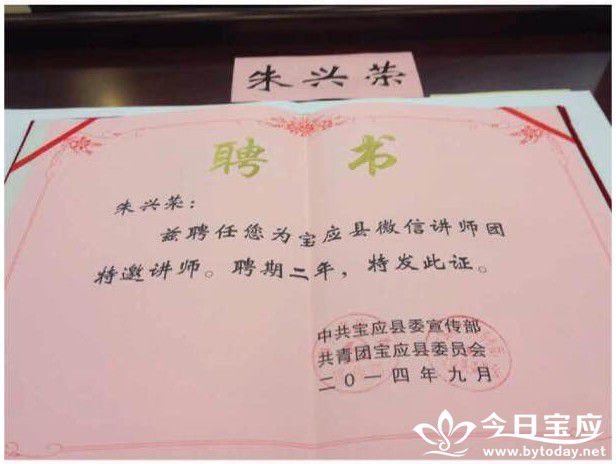 朱兴荣
聘 书
朱兴荣：
兹聘任您为宝应县微信讲师团
特邀讲师。聘期二年，特发此证。
中共宝应县委宣传部
共青团宝应县委员会
二〇一四年九月
今日宝应
www.bytoday.net